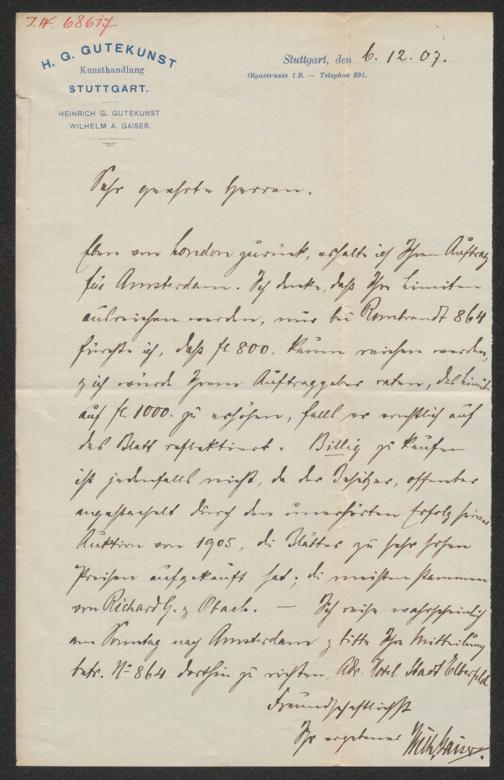 J.N. 68617
H. G. GUTEKUNST
Kunsthandlung
STUTTGART.
HEINRICH G. GUTEKUNST
WILHELM A. GAISER.
Stuttgart, den 6. 12. 07.
Olgastrasse 1 B. — Telephon 595.
Sehr geehrte Herren.
Eben von London zurück, erhalte ich Ihren Auftrag
für Amsterdam. Ich denke, daß Ihre Limiten
ausreichen werden, nur bei Rembrandt 864
fürchte ich, daß fl 800. kaum reichen werden,
& ich würde Ihrem Auftraggeber raten, das Limit
auf fl. 1000. zu erhöhen, falls er ernstlich auf
das Blatt reflektiert. Billig zu kaufen
ist jedenfalls nicht, da der Besitzer, offenbar
angestachelt durch den unerhörten Erfolg seiner
Auktion von 1905, die Blätter zu sehr hohen
Preisen aufgekauft hat; die meisten stammen
von Richard G. & Obach. — Ich reise wahrscheinlich
am Sonntag nach Amsterdam & bitte Ihre Mitteilung
betr. No 864 dorthin zu richten, Adr. Hotel Stadt Elberfeld
Freundschaftlichst
Ihr ergebener Wilh. Gaiser.